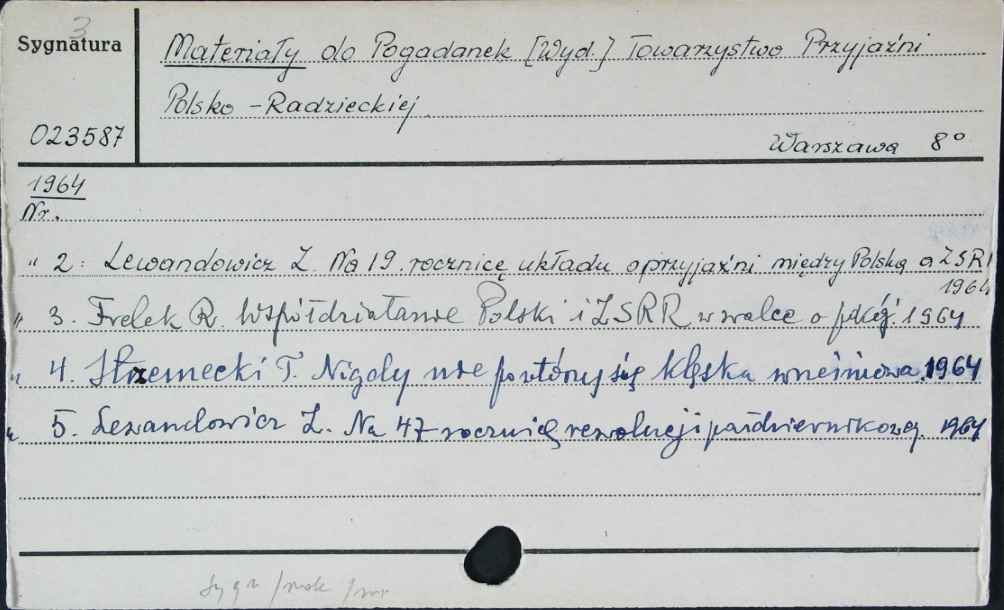 3
Sygnatura
Materiały do Pogadanek [Wyd.] Towarzystwo Przyjaźni
Polsko - Radzieckiej
023587
Warszawa 8°
1964
Nr.
" 2. Lewandowicz Z. Na 19. rocznicę układu o przyjaźni między Polską a ZSRR
1964
" 3. Frelek R. Współdziałanie Polski i ZSRR w walce o pokój 1964
" 4. Strzemecki T. Nigdy nie powtórzy się klęska wrześniowa. 1964
" 5. Lewandowicz Z. Na 47 rocznicę rewolucji październikowej. 1964
Sygn /rok /nr